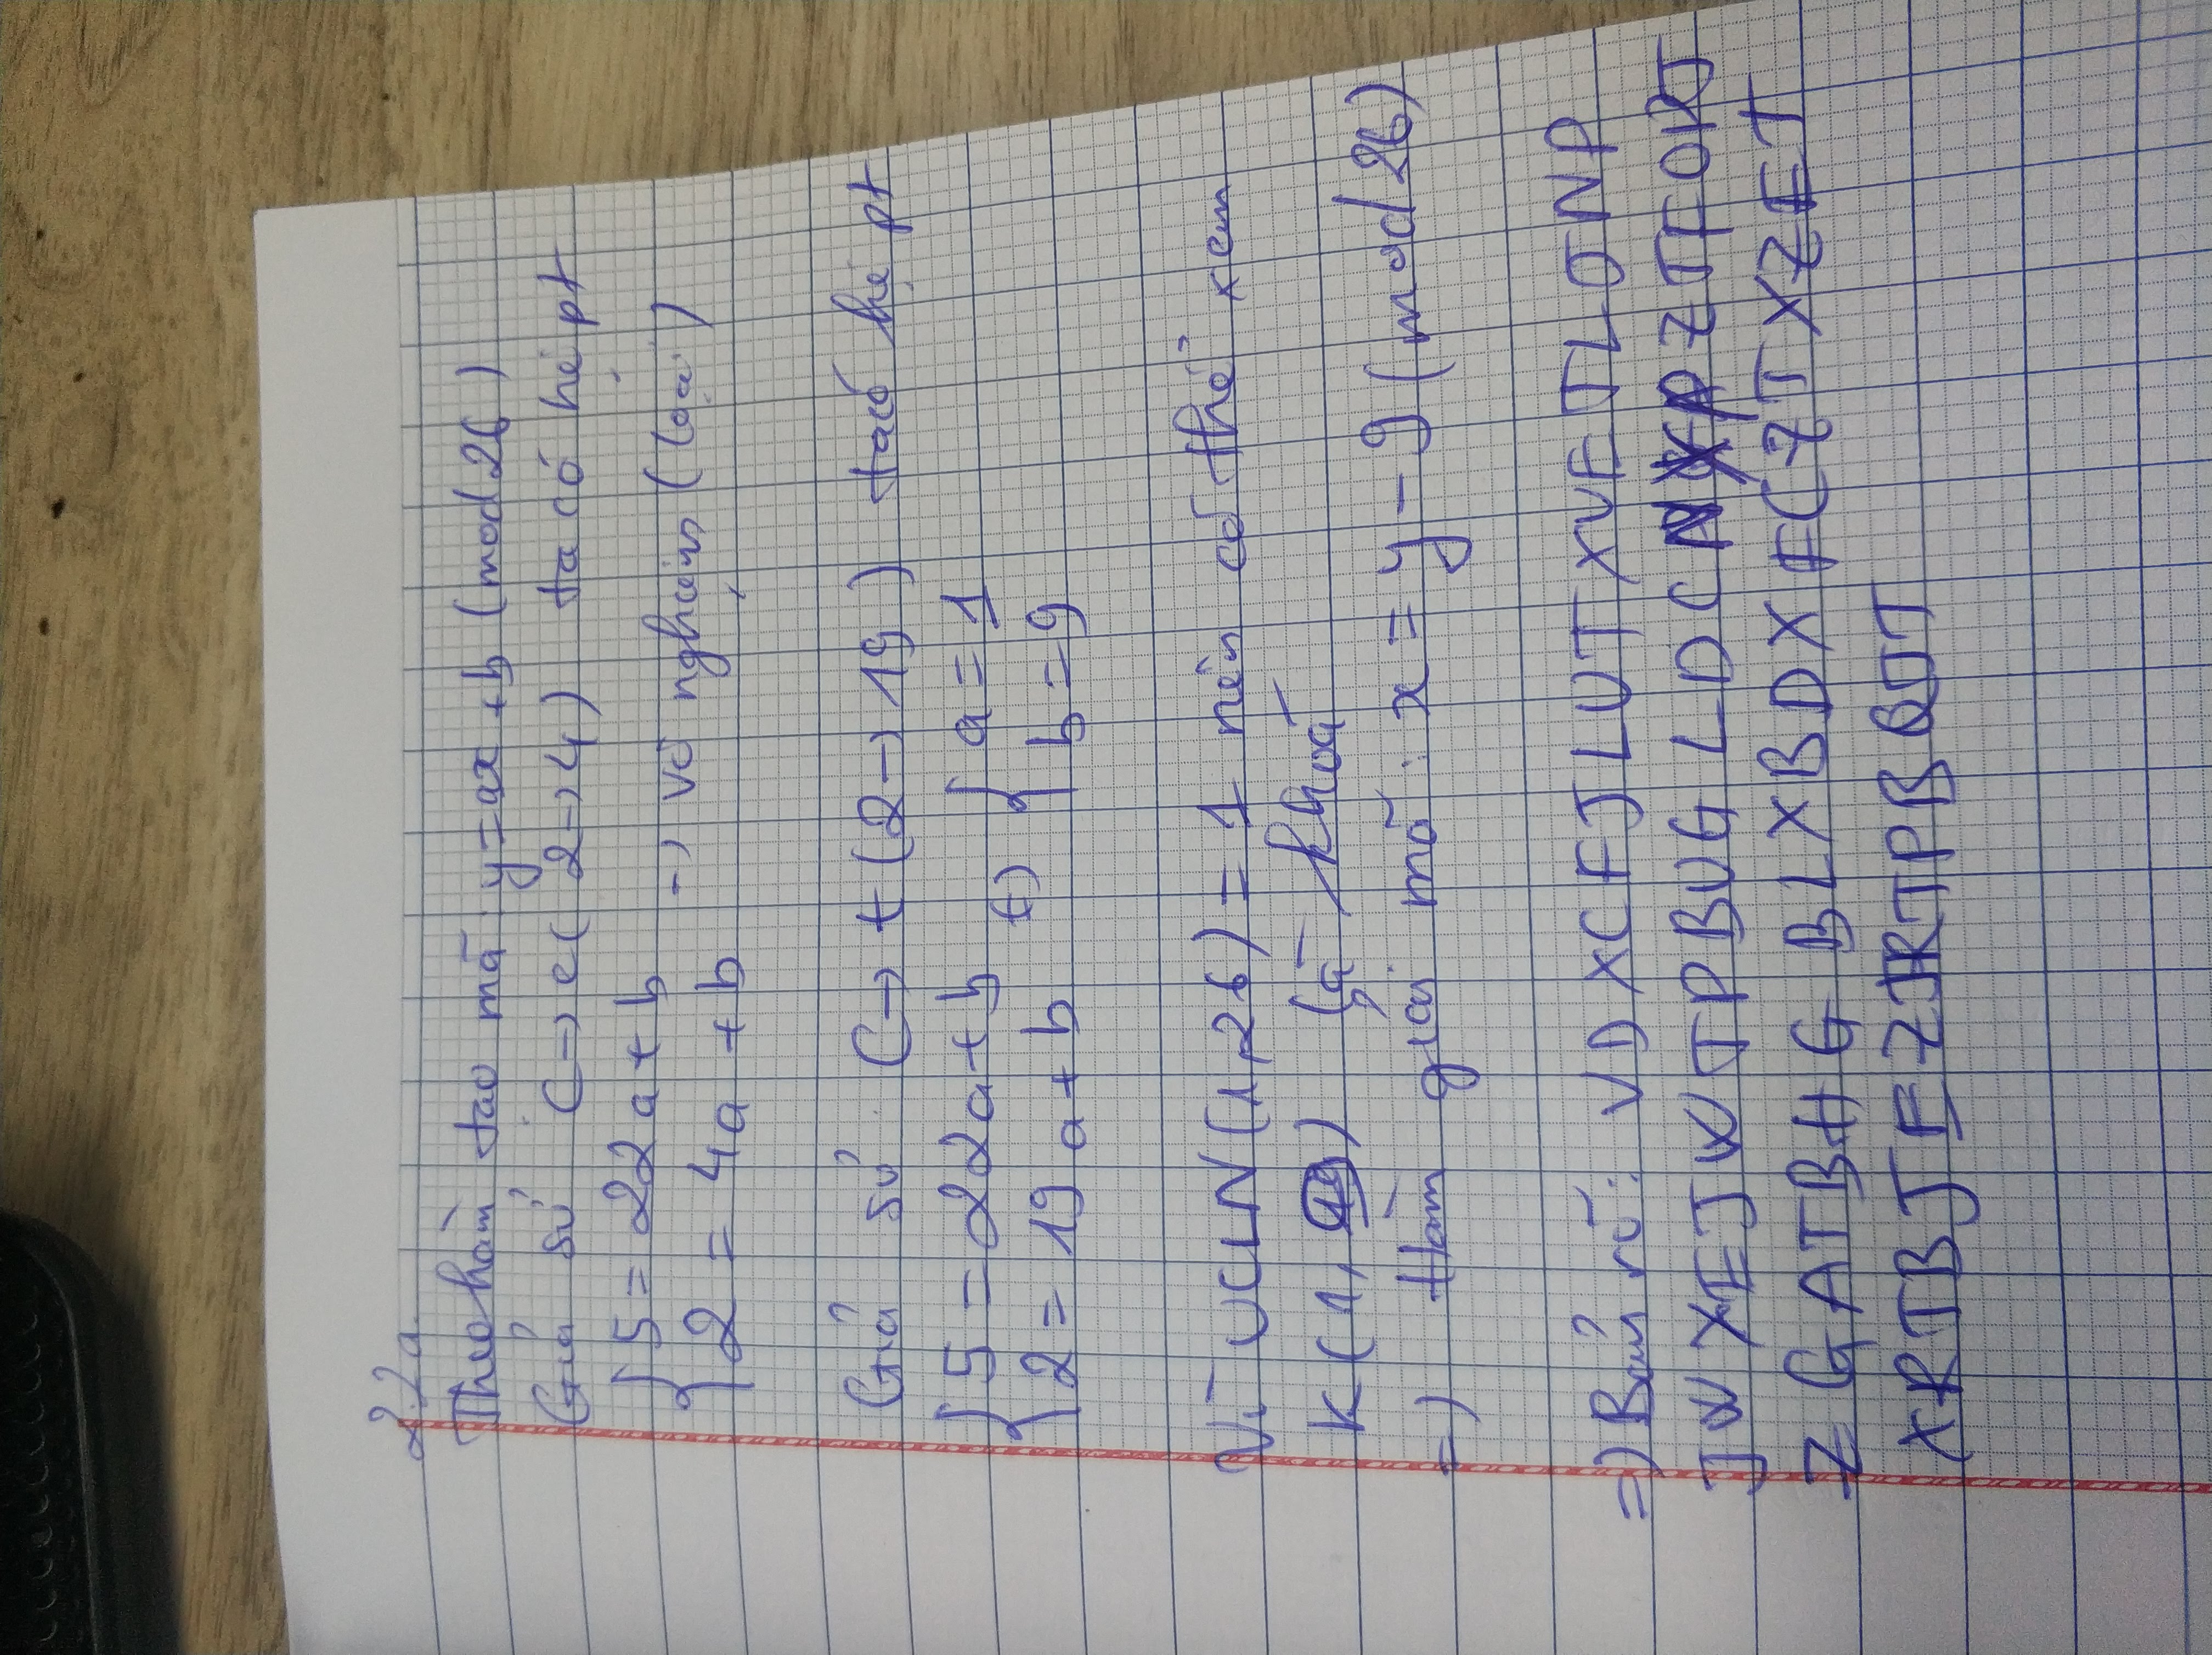 2.2a
Theo hàm tạo mã y=ax +b (mod 26)
Giả sử C→e( 2→4) ta có hệ pt
{ 5 = 22a + b
{ 2 = 4a + b → vô nghiệm (loại)
Giả sử C→ t (2→19) ta có hệ pt
{ 5 = 22a + b { a = 1
{ 2 = 19 a + b ⇔ { b = 9
Vì UCLN(1,26) = 1 nên có thể xem
K(1, ) là khoá
⇒ Hàm giải mã : x = y - 9 (mod 26)
⇒) Bản rõ: VDXCFJLUTXVEJLONP
JWXEJWTPBUGLDCN PZTFOPJ
ZGATBHGBLXBDXFCZTXZET
XRTBJEZJRTPBQJT